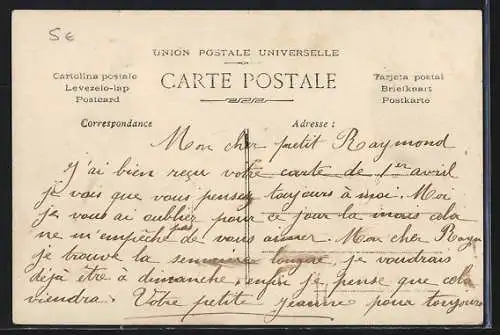 5€
UNION POSTALE UNIVERSELLE
CARTE POSTALE
Cartolina postale
Levelezo-lap
Postcard
Tarjeta postal
Briefkaart
Postkarte
Correspondance
Adresse :
Mon cher petit Raymond
J'ai bien reçu votre carte de 1er avril
je vois que vous pensez toujours à moi. Moi
je vous ai oublier pour ce jour la mais cela
ne m'empêche pas de vous aimer. Mon cher Raym
je trouve la semaine longue, je voudrais
déjà être à dimanche, enfin je pense que cela
viendra. Votre petite Jeanne pour toujours